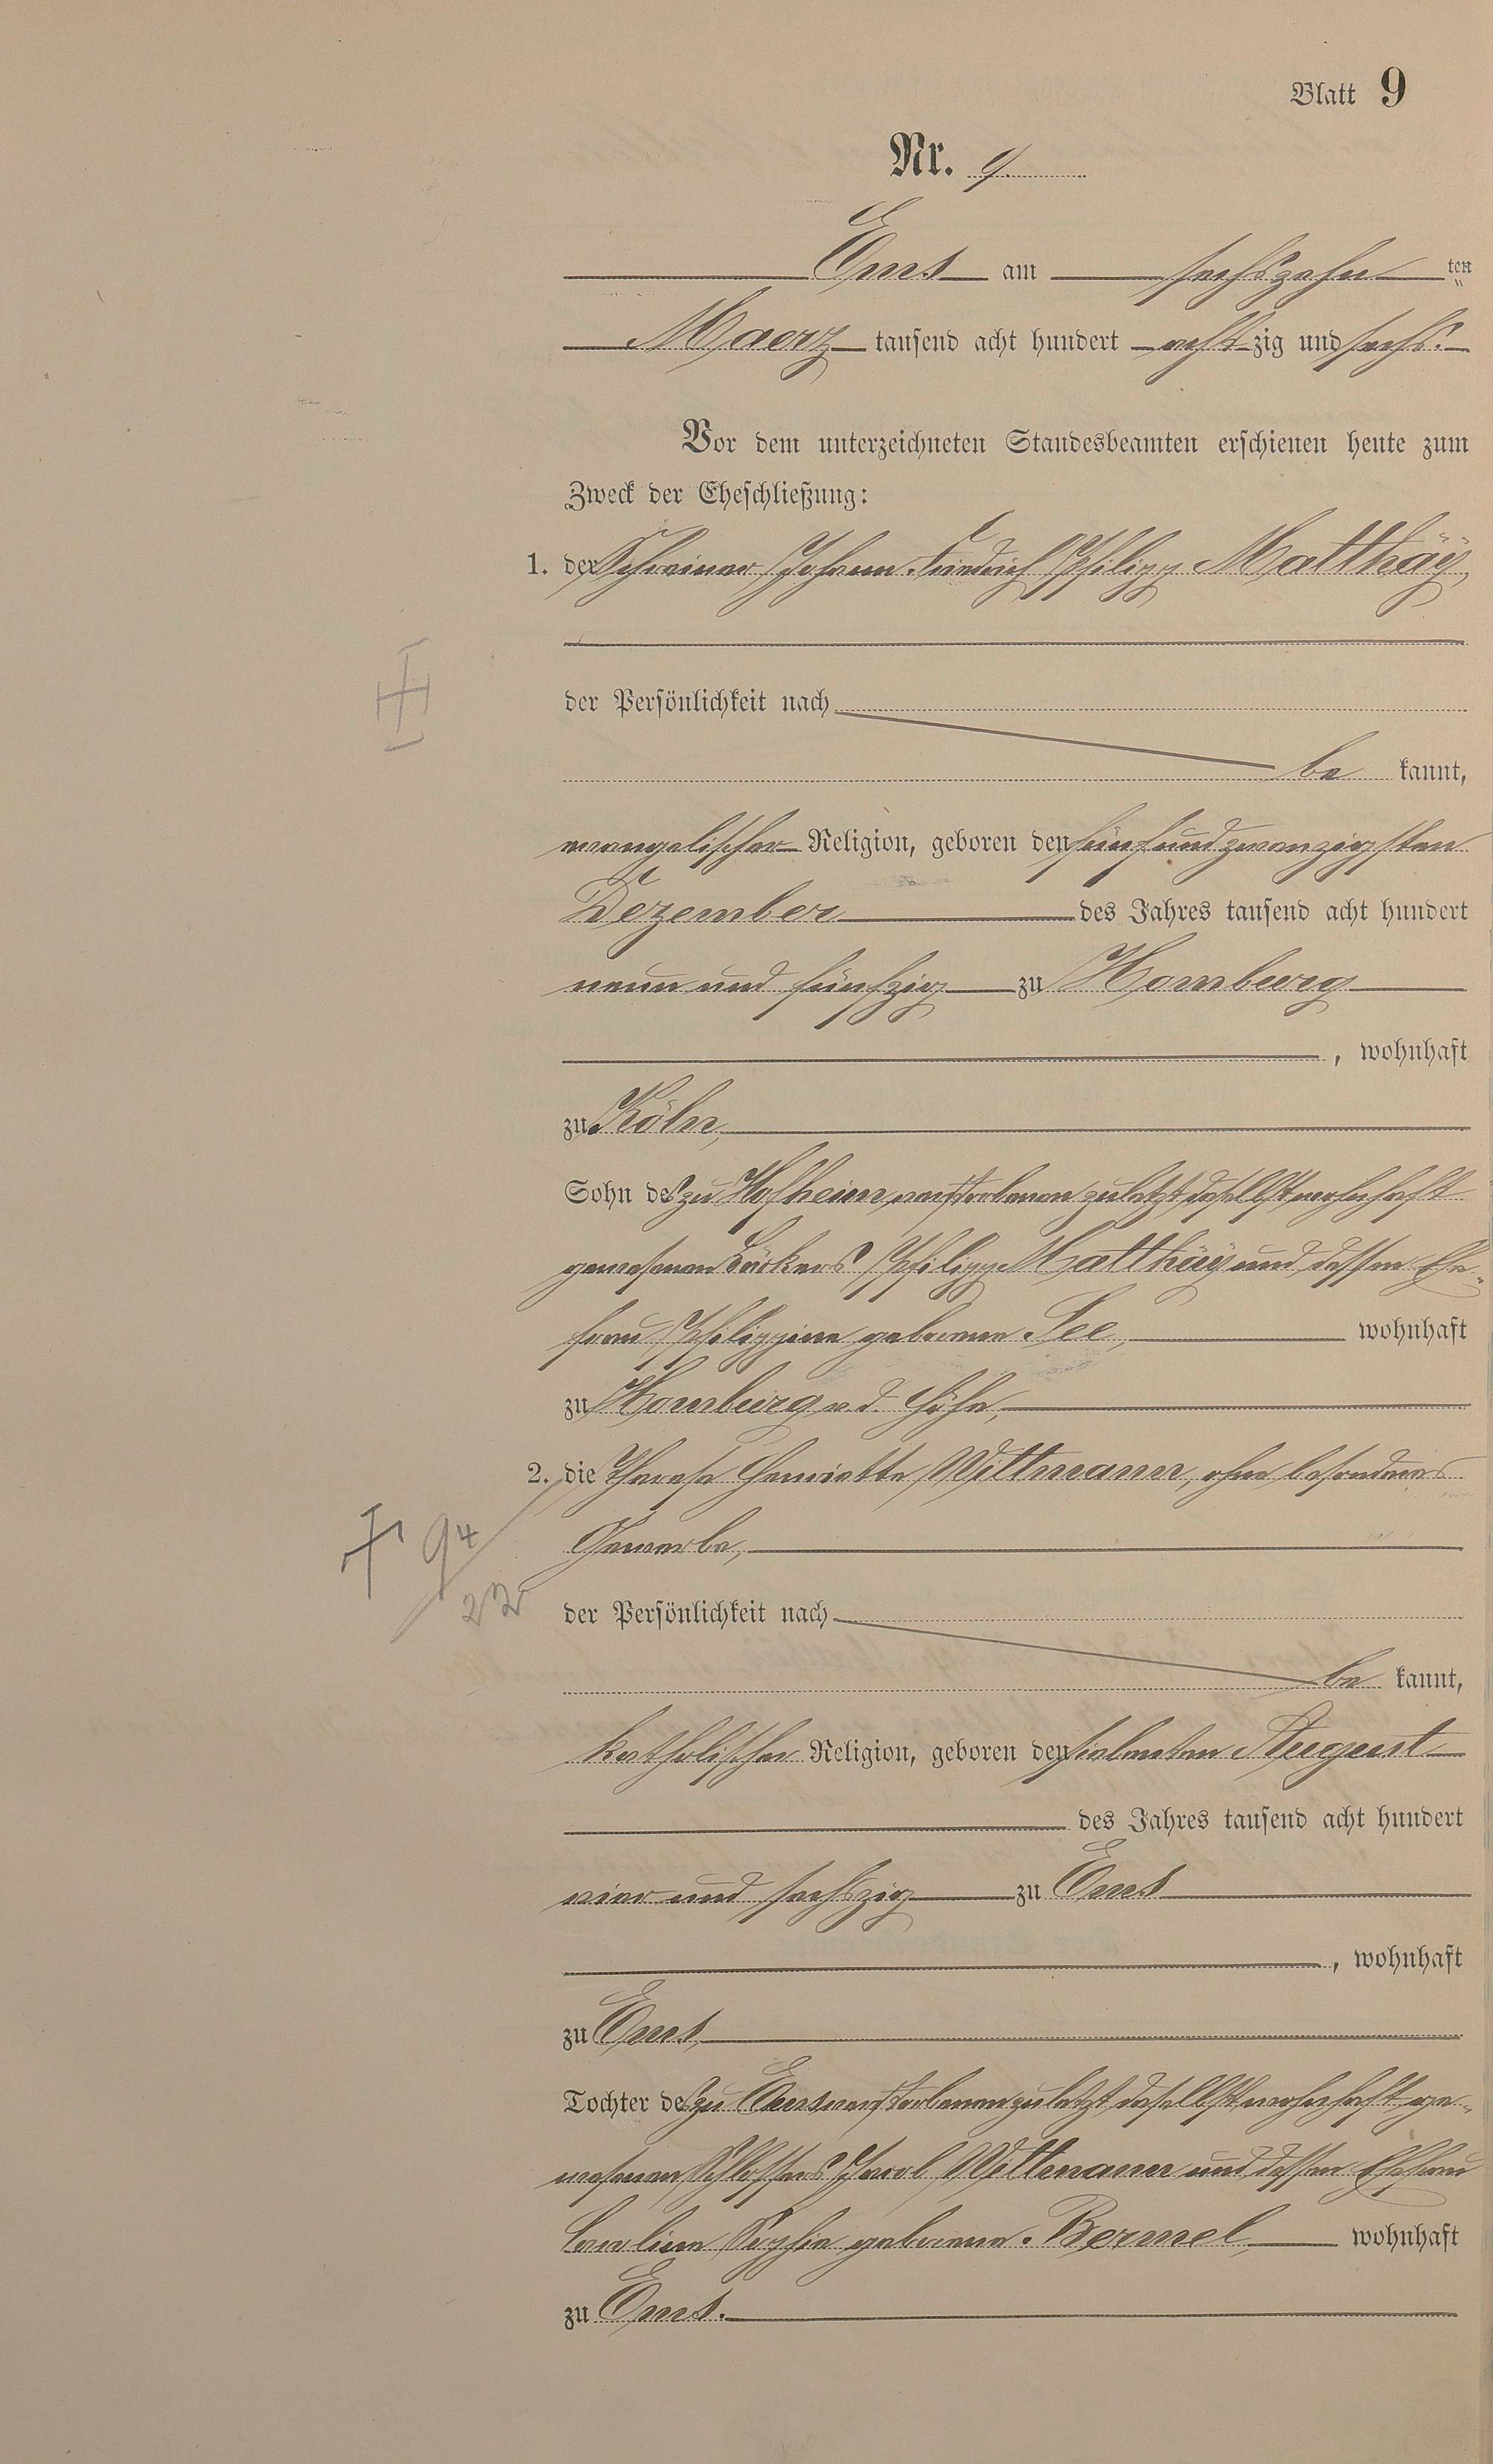 Blatt 9
Nr. 9.
Ems am sechszehn ten
Maerz tausend acht hundert acht zig und sechs.
Vor dem unterzeichneten Standesbeamten erschienen heute zum
Zweck der Eheschließung:
1. der Schreiner Johann Friedrich Philipp Matthäÿ,
der Persönlichkeit nach
be kannt,
evangelischer Religion, geboren den fünf und zwanzigsten
Dezember des Jahres tausend acht hundert
neun und fünfzig zu Homburg
, wohnhaft
zu Köln,
Sohn des zu Hofheim verstorbenen zuletzt daselbst wohnhaft
gewesenen Bäckers Philipp Matthäÿ und dessen Ehe-
frau Philippine geborene See, wohnhaft
zu Homburg v. d. Höhe,
2. die Therese Henriette Wittmann, ohne besonderes
Gewerbe,
94/22
der Persönlichkeit nach
be kannt,
katholischer Religion, geboren den siebenten August
des Jahres tausend acht hundert
vier und sechszig zu Ems
, wohnhaft
zu Ems,
Tochter des zu Ems verstorbenen zuletzt daselbst wohnhaft ge-
wesenen Schlossers Jacob Wittmann und dessen Ehefrau
Caroline Sophie geborene Bermel, wohnhaft
zu Ems.